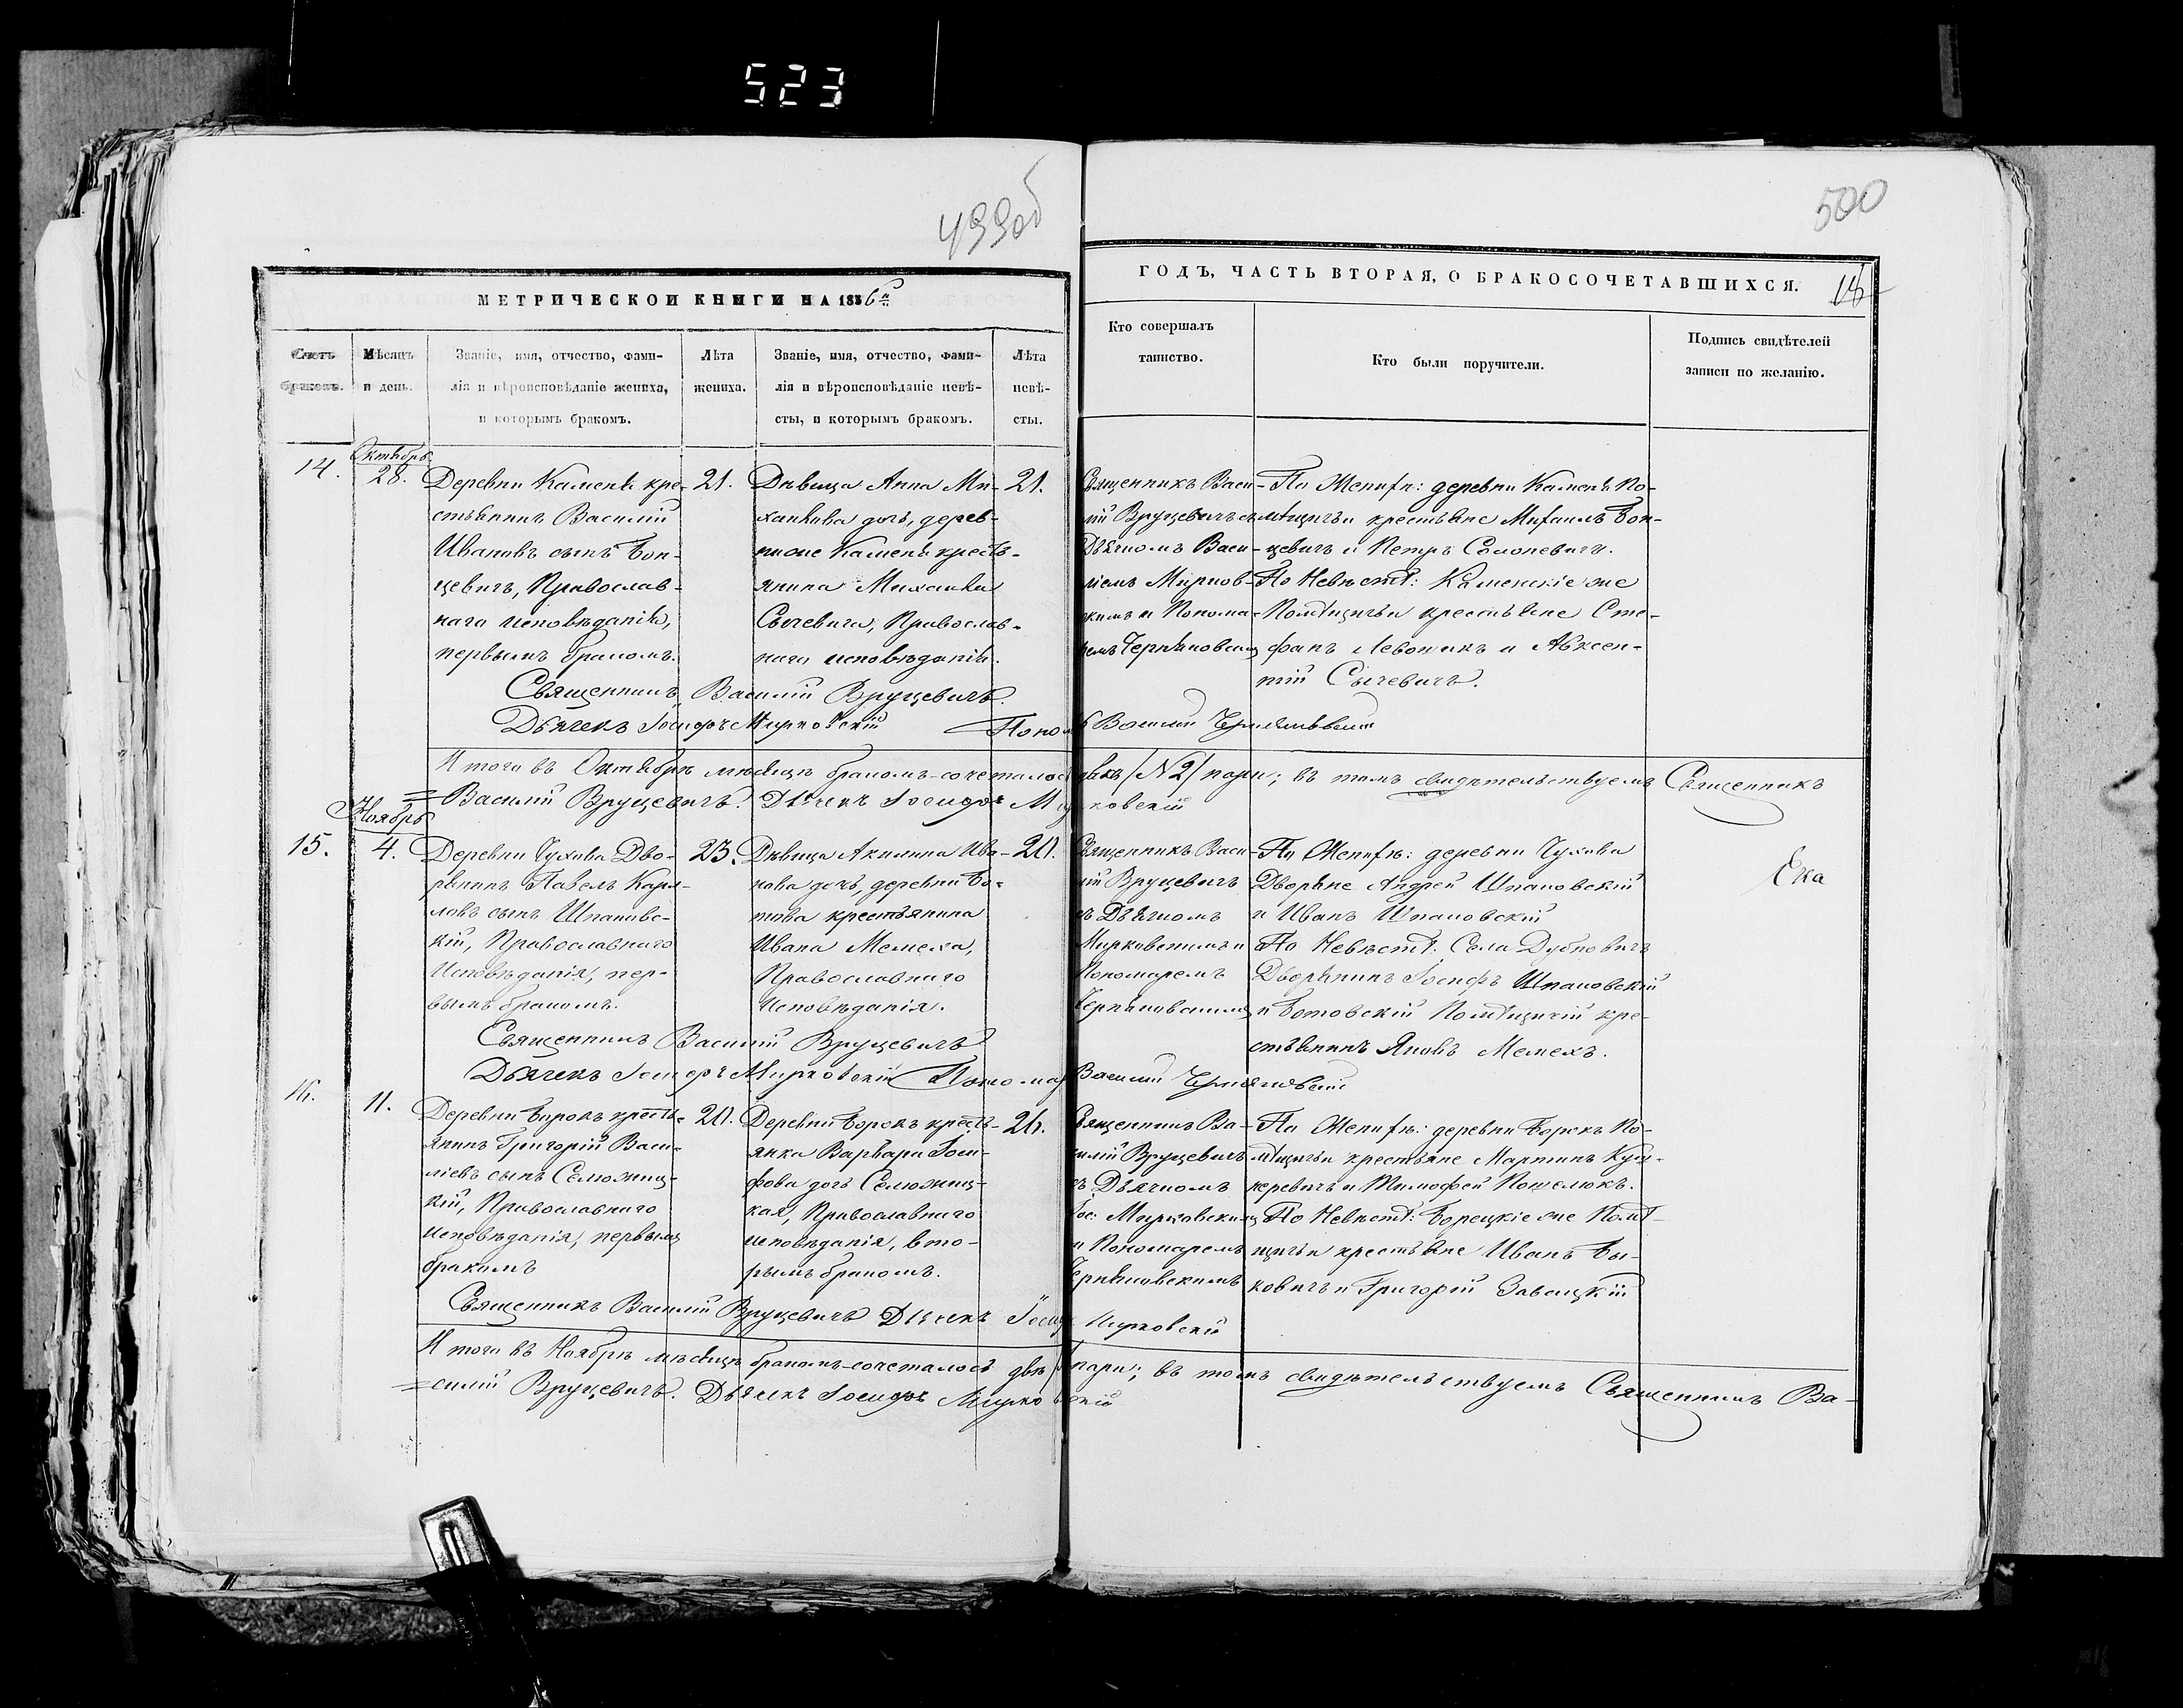 523
499об
500
МЕТРИЧЕСКОЙ КНИГИ НА 1856й
ГОДЪ, ЧАСТЬ ВТОРАЯ, О БРАКОСОЧЕТАВШИХСЯ.
Счетъ браковъ.
Мѣсяцъ и день.
Званіе, имя, отчество, фами-
лія и вѣроисповѣданіе жениха,
и которымъ бракомъ.
Лѣта
жениха.
Званіе, имя, отчество, фами-
лія и вѣроисповѣданіе невѣ-
сты, и которымъ бракомъ.
Лѣта
невѣ-
сты.
Кто совершалъ
таинство.
Кто были поручители.
Подпись свидѣтелей
записи по желанію.
14.
Октябрь
28.
Деревни Каменя кре-
стьянинъ Василій
Ивановъ сынъ Бон-
цевичъ, Православ-
наго исповѣданія,
первымъ бракомъ.
21.
Дѣвица Анна Ми-
хайлова дочь, дерев-
Каменя кресть-
янина Михаила
Сычевича, Православ-
наго исповѣданія.
21.
Священникъ Васи-
лій Вруцевичъ съ
Дьячкомъ Васи-
ліемъ Мирков-
скимъ и Понома-
ремъ
По Женихѣ: деревни Каменя По-
мѣщичьи крестьяне Михаилъ Бон-
цевичъ и Петръ Солоневичъ.
По Невѣстѣ: Каменскіе же
Помѣщичьи крестьяне Сте-
фанъ Левоникъ и Авксен-
тій Сычевичъ.
Священникъ Василій Вруцевичъ.
Дьячекъ Іосифъ Мирковскій Пономарь Василій
Итого въ Октябрѣ мѣсяцѣ бракомъ сочеталось двѣ /N 2/ пары; въ томъ свидѣтельствуемъ Священникъ
= Василій Вруцевичъ. Дьячекъ Іосифъ Мирковскій
15.
Ноябрь
4.
Деревни Чухова Дво-
рянинъ Павелъ Кар-
ловъ сынъ Шпаковс-
кій, Православнаго
Исповѣданія, пер-
вымъ бракомъ.
23.
Дѣвица Акилина Ива-
нова дочь, деревни Бо-
това крестьянина
Ивана Мелеха,
Православнаго
Исповѣданія.
20.
Священникъ Васи-
лій Вруцевичъ
съ Дьячкомъ
Мирковскимъ и
Пономаремъ
По Женихѣ: деревни Чухова
Дворяне Андрей Шпаковскій
и Иванъ Шпаковскій
По Невѣстѣ: Села Дубновичъ
Дворянинъ Іосифъ Шпаковскій
и Ботовскій Помѣщичій кре-
стьянинъ Яковъ Мелехъ.
Ека
Священникъ Василій Вруцевичъ
Дьячекъ Іосифъ Мирковскій Пономарь Василій
16.
11.
Деревни Борокъ кресть-
янинъ Григорій Васи-
ліевъ сынъ Селюжиц-
кій, Православнаго
исповѣданія, первымъ
бракомъ
20.
Деревни Борокъ кресть-
янка Варвара Іоси-
фова дочь Селюжиц-
кая, Православнаго
исповѣданія, вто-
рымъ бракомъ.
26.
Священникъ Ва-
силій Вруцевичъ
съ Дьячкомъ
Іос: Мирковскимъ
и Пономаремъ
По Женихѣ: деревни Борокъ По-
мѣщичьи крестьяне Мартинъ
и Тимофей
По Невѣстѣ: Борецкіе же Помѣ-
щичьи крестьяне Иванъ Бы-
ковичъ и Григорій Завацкій
Священникъ Василій Вруцевичъ Дьячекъ Іосифъ Мирковскій
Итого въ Ноябрѣ мѣсяцѣ бракомъ сочеталось двѣ пары; въ томъ свидѣтельствуемъ Священникъ Ва-
=силій Вруцевичъ. Дьячекъ Іосифъ Мирковскій